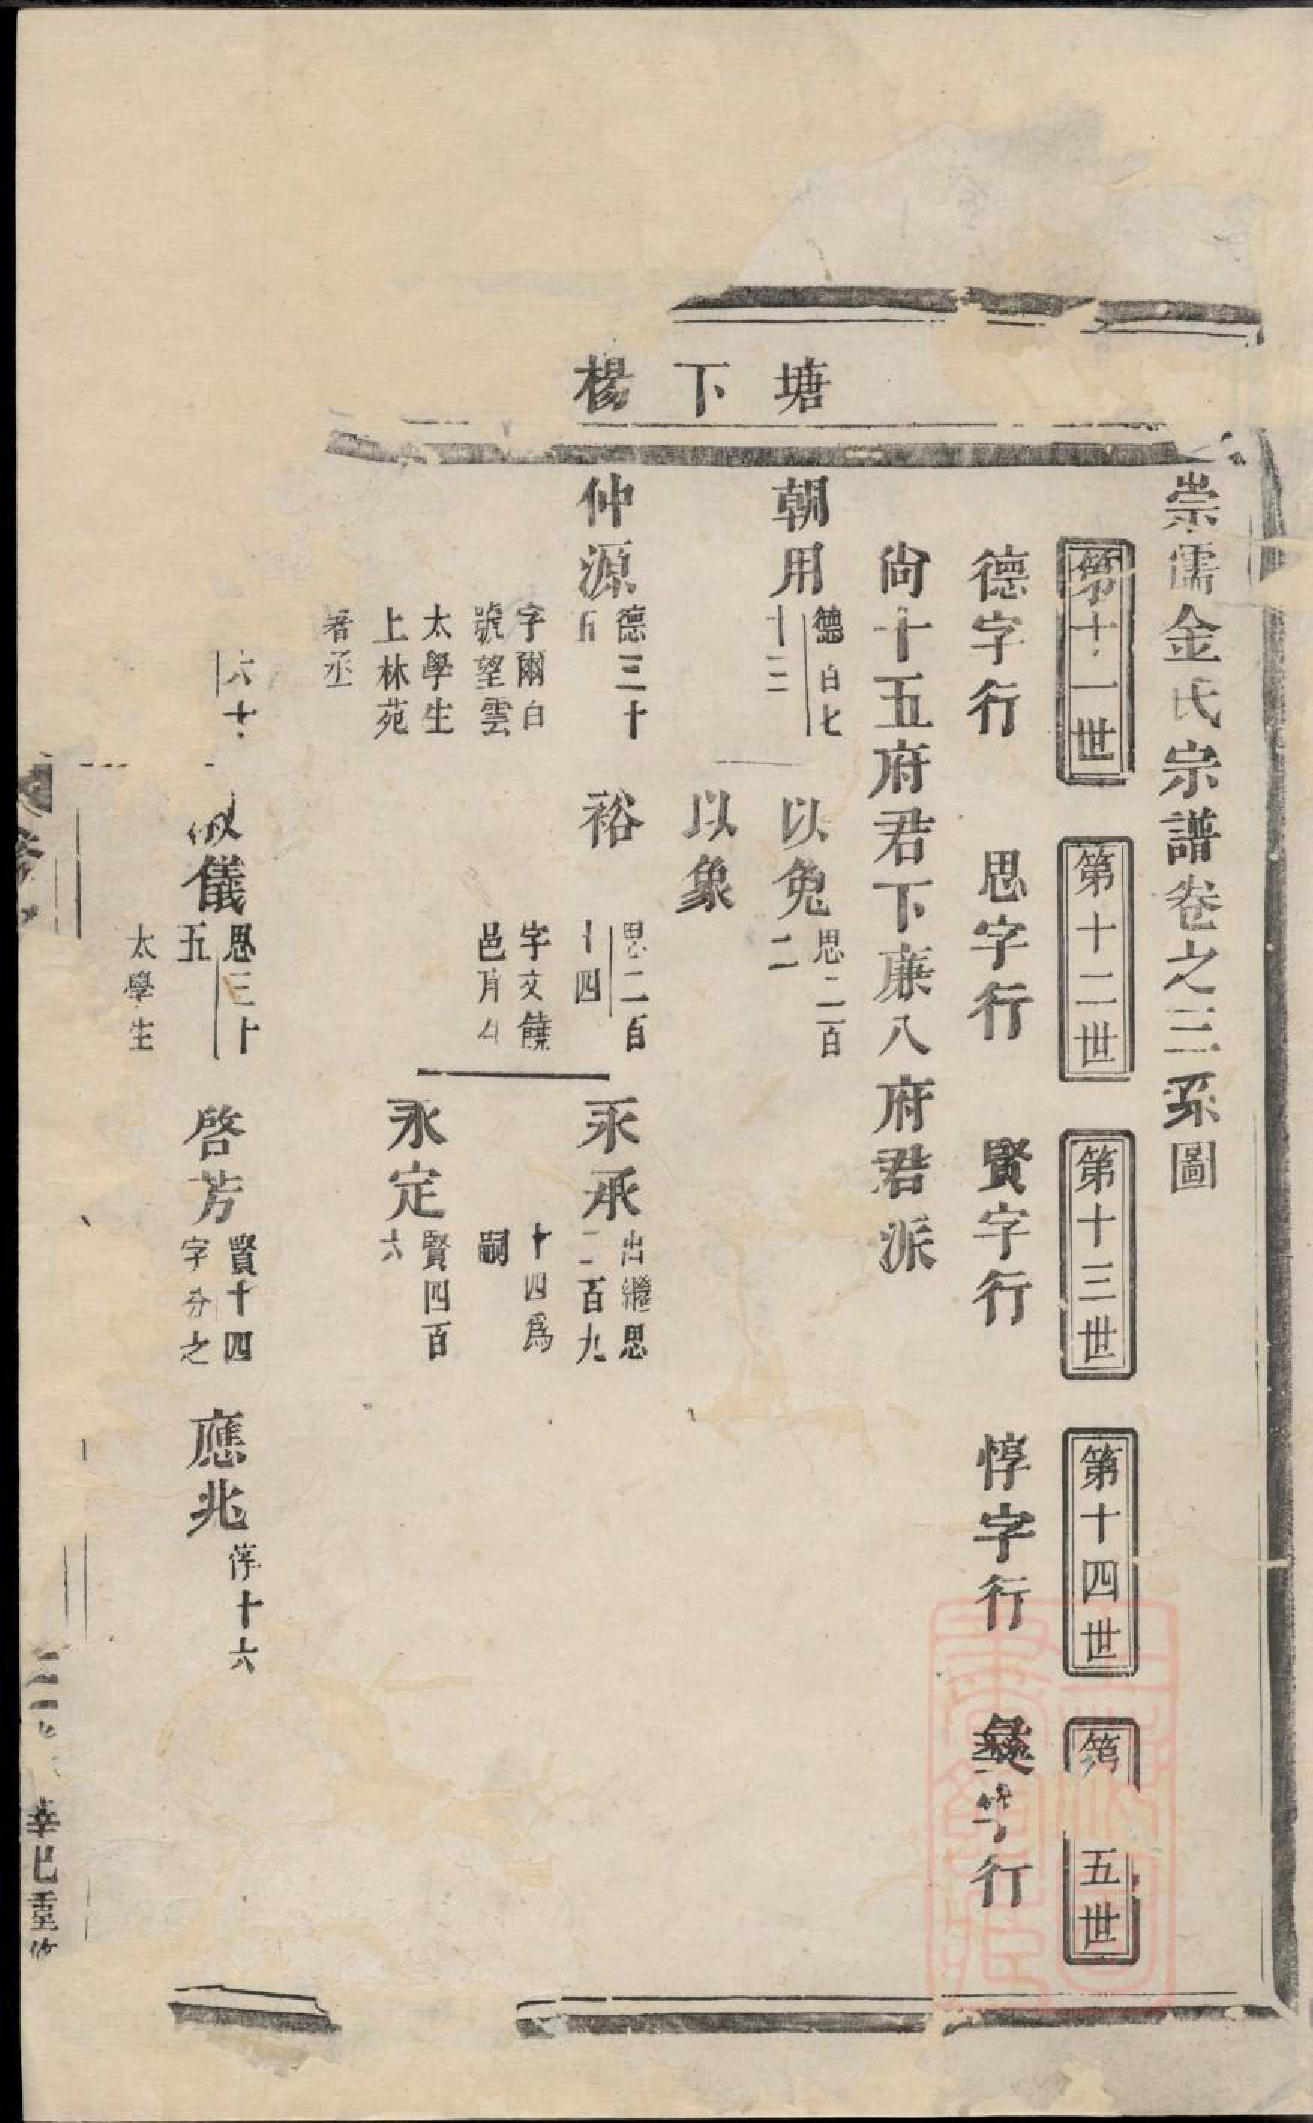 崇儒金氏宗譜卷之三系圖
第十一世
第十二世
第十三世
第十四世
第 五世
德字行
思字行
賢字行
惇字行
彝字行
尙十五府君下廉八府君派
塘下楊
朝用
德百七
十三
以兔
思二百
二
以象
仲源
德三十
五
字爾白
號望雲
太學生
上林苑
署丞
裕
思二百
十四
字文饒
邑
永承
出繼思
二百九
十四爲
嗣
永定
賢四百
六
六十
儀
思三十
五
太學生
啓芳
賢十四
字 之
應兆
惇十六
辛巳重修